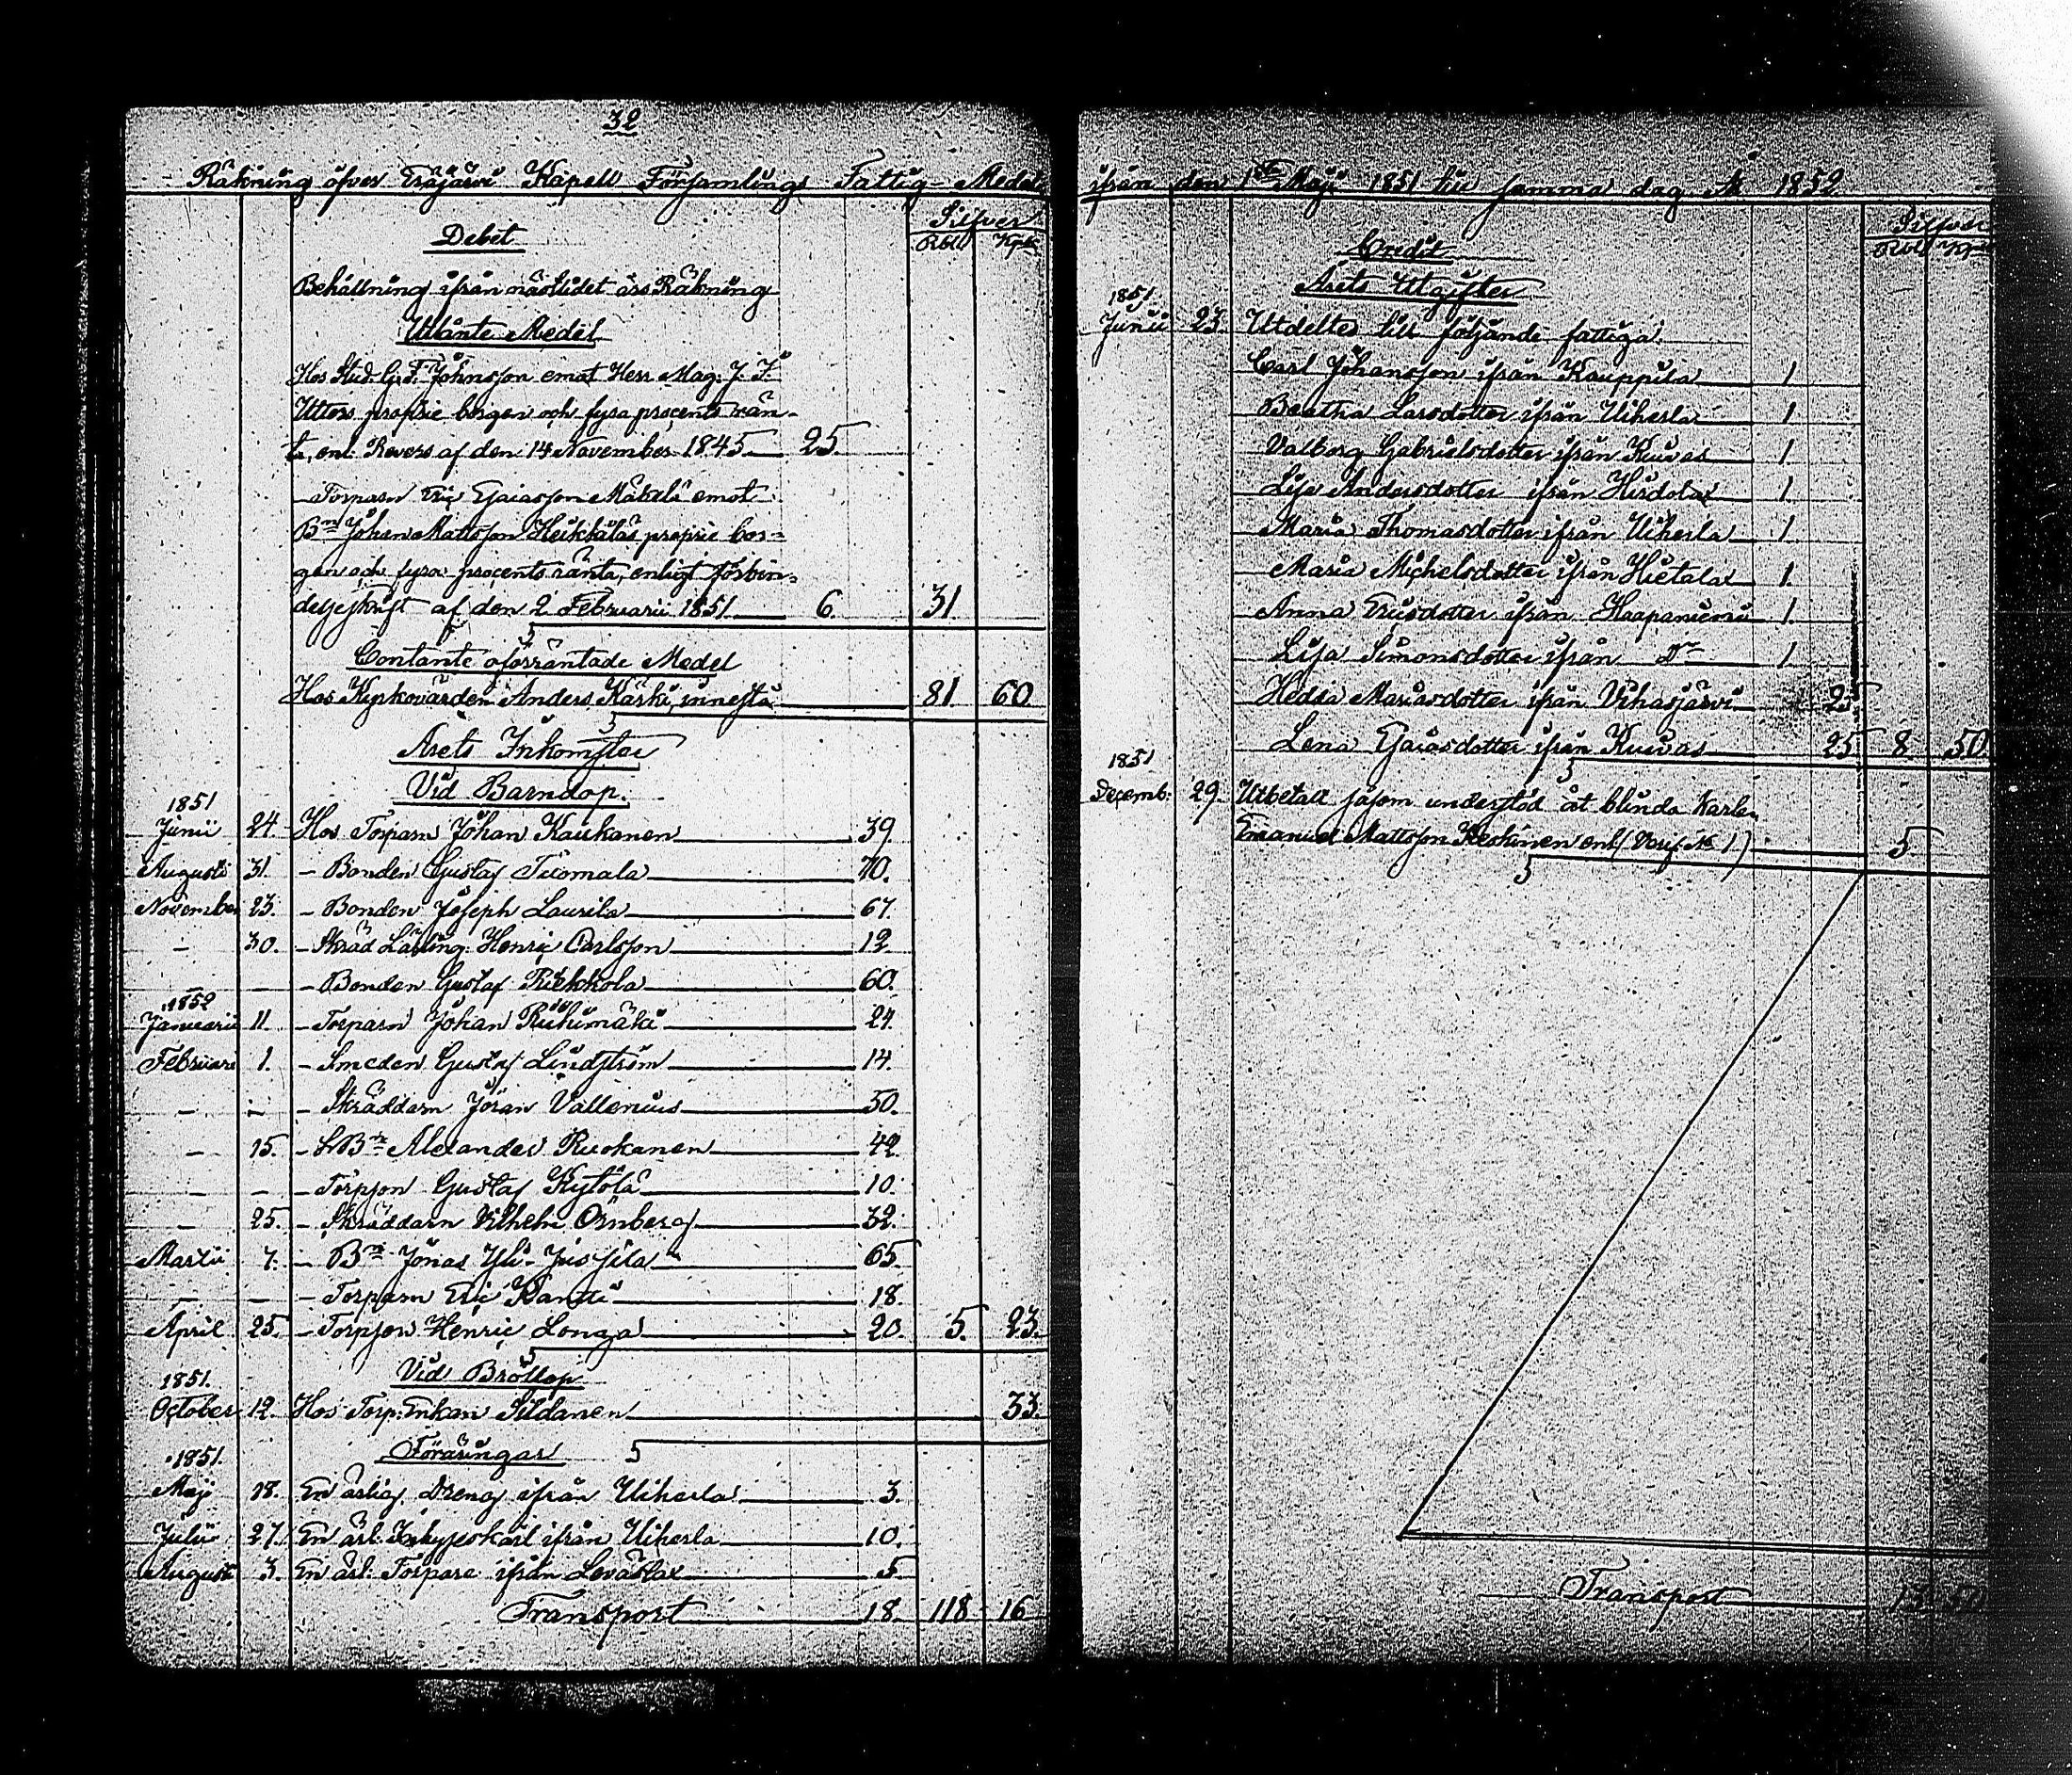 32
Räkning öfver Eräjärvi Kapell Församlings Fattig Medel
Silfver
Debet Rbl Kpk
Behållning ifrån nästlidet års Räkning
Utlånte Medel
Hos Stud. G. F. Johnsson emot Herr Mag. J. F.
Utters proprie borgen och fyra procents rän-
ta, enl. Revers af den 14 November 1845 25
- Torparn Eric Esaiasson Mäkelä emot
Bn Johan Mattsson Heikkiläs proprie bor-
gen och fyra procents ränta, enligt förbin-
delseskrift af den 2 Februarii 1851 6. 31
Contante oförräntade Medel
Hos Kyrkovärden Anders Kärki, innestå 81 60
Årets Inkomster
Vid Barndop.
1851
Junii 24. Hos Torparn Johan Kaukanen 39.
Augusti 31. - Bonden Gustaf Tuomala 70.
November 23. - Bonden Joseph Laurila 67.
- 30. - Skräd Lärling. Henric Carlsson 12
- - - Bonden Gustaf Rickkola 60.
1852
Januarii 11. - Torparn Johan Riihimäki 24.
Februari 1. - Smeden Gustaf Lindström 14.
- - - Skräddarn Jöran Vallenius 50.
- 15. - Bn Alexander Ruokanen 42
- - - Torpson Gustaf Kytölä 10.
- 25. - Skräddarn Vilhelm Örnberg 32.
Martii 7. - Bn Jonas Yli-Jussila 65
- - - Torparn Eric Rantti 18.
April 25. - Torpson Henric Longa 20. 5. 23.
Vid Bröllop
1851.
October 12. Hos Torp: Enkan Sildanen 33.
Föräringar
1851.
Maji 18. En ärlig Dreng ifrån Uiherla 3.
Julii 27. En ärl: Inhyseskarl ifrån Uiherla 10.
August 3. En ärl: Torpare ifrån Leväslax 5
Transport 18. 118 16
ifrån den 1sta Maji 1851 till samma dag År 1852
Silfver
Credit Rbl Kpk
Årets Utgifter
1851
Junii 23. Utdeltes till följande fattiga:
Carl Johansson ifrån Kauppila 1
Beatha Larsdotter ifrån Uiherla 1
Valborg Gabrielsdotter ifrån Kuivas 1
Lisa Andersdotter ifrån Hirdolax 1
Maria Thomasdotter ifrån Uiherla 1
Maria Michelsdotter ifrån Hietala 1.
Anna Ericsdotter ifrån Haapaniemi 1.
Lisa Simonsdotter ifrån Do 1
Hedda Mariasdotter ifrån Vihasjärvi 25
Lena Esaiasdotter ifrån Kuivas 25 8. 50.
1851
Decemb. 29. Utbetalt såsom understöd åt blinda Karlen
Emanuel Mattsson Keskinen enl (Verif. No 1) 5
Transport 13 50